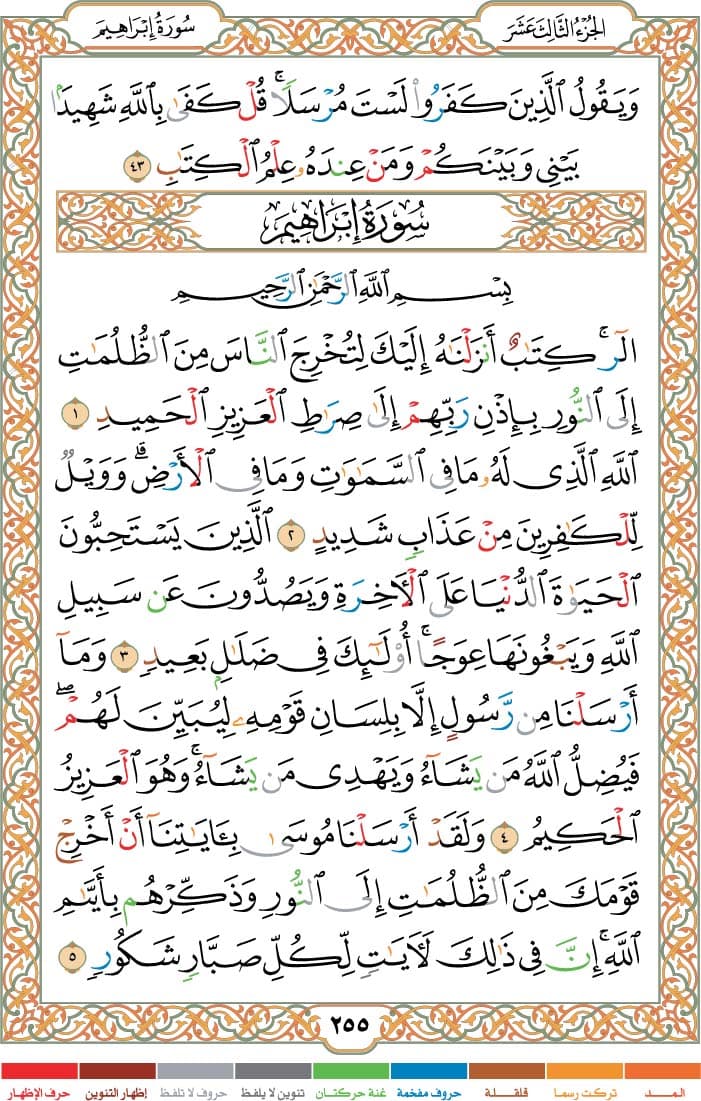 سُورَةُ إِبْرَاهِيمَ
الجُزْءُ الثَّالِثَ عَشَرَ
وَيَقُولُ ٱلَّذِينَ كَفَرُوا۟ لَسْتَ مُرْسَلًا ۚ قُلْ كَفَىٰ بِٱللَّهِ شَهِيدًۢا
بَيْنِى وَبَيْنَكُمْ وَمَنْ عِندَهُۥ عِلْمُ ٱلْكِتَـٰبِ ٤٣
سُورَةُ إِبْرَاهِيمَ
بِسْمِ ٱللَّهِ ٱلرَّحْمَـٰنِ ٱلرَّحِيمِ
الٓر ۚ كِتَـٰبٌ أَنزَلْنَـٰهُ إِلَيْكَ لِتُخْرِجَ ٱلنَّاسَ مِنَ ٱلظُّلُمَـٰتِ
إِلَى ٱلنُّورِ بِإِذْنِ رَبِّهِمْ إِلَىٰ صِرَٰطِ ٱلْعَزِيزِ ٱلْحَمِيدِ ١
ٱللَّهِ ٱلَّذِى لَهُۥ مَا فِى ٱلسَّمَـٰوَٰتِ وَمَا فِى ٱلْأَرْضِ ۗ وَوَيْلٌ
لِّلْكَـٰفِرِينَ مِنْ عَذَابٍ شَدِيدٍ ٢ ٱلَّذِينَ يَسْتَحِبُّونَ
ٱلْحَيَوٰةَ ٱلدُّنْيَا عَلَى ٱلْـَٔاخِرَةِ وَيَصُدُّونَ عَن سَبِيلِ
ٱللَّهِ وَيَبْغُونَهَا عِوَجًا ۚ أُو۟لَـٰٓئِكَ فِى ضَلَـٰلٍۭ بَعِيدٍ ٣ وَمَآ
أَرْسَلْنَا مِن رَّسُولٍ إِلَّا بِلِسَانِ قَوْمِهِۦ لِيُبَيِّنَ لَهُمْ ۖ
فَيُضِلُّ ٱللَّهُ مَن يَشَآءُ وَيَهْدِى مَن يَشَآءُ ۚ وَهُوَ ٱلْعَزِيزُ
ٱلْحَكِيمُ ٤ وَلَقَدْ أَرْسَلْنَا مُوسَىٰ بِـَٔايَـٰتِنَآ أَنْ أَخْرِجْ
قَوْمَكَ مِنَ ٱلظُّلُمَـٰتِ إِلَى ٱلنُّورِ وَذَكِّرْهُم بِأَيَّىٰمِ
ٱللَّهِ ۚ إِنَّ فِى ذَٰلِكَ لَـَٔايَـٰتٍ لِّكُلِّ صَبَّارٍ شَكُورٍ ٥
٢٥٥
المــد تركت رسما قلقلة حروف مفخمة غنة حركتان تنوين لا يلفظ حروف لا تلفظ إظهار التنوين حرف الإظهار